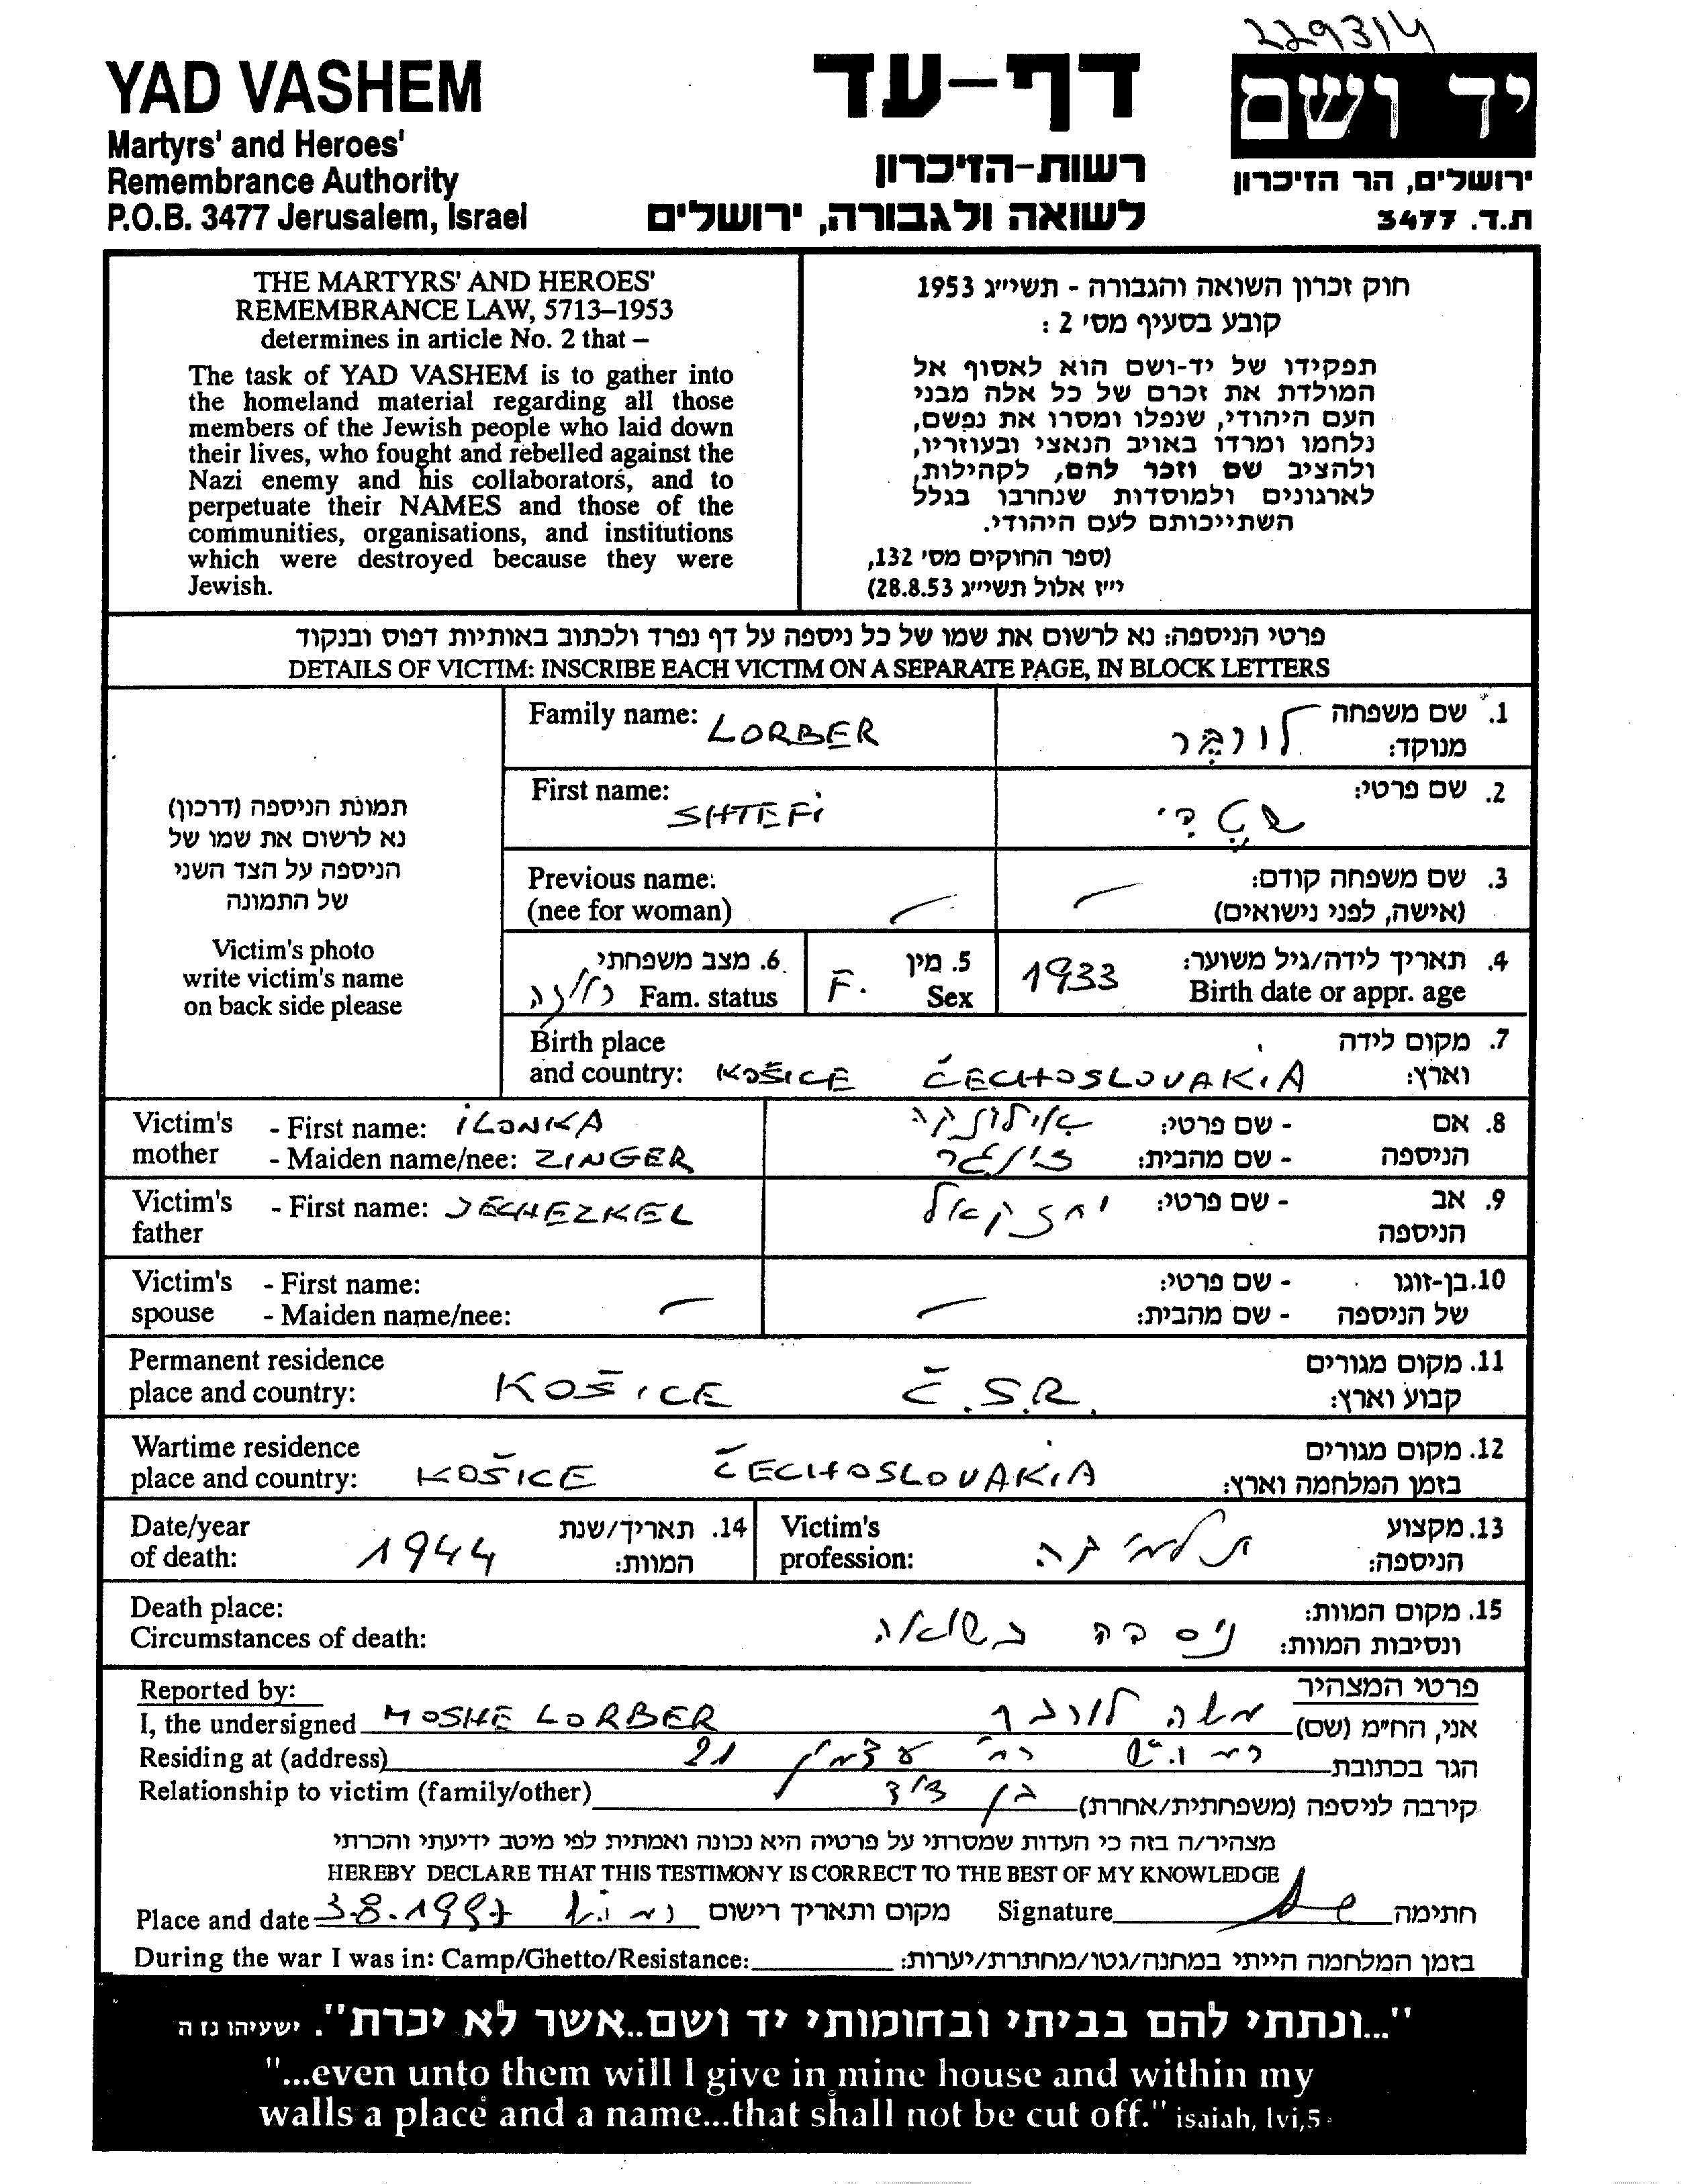 229314
YAD VASHEM
Martyrs' and Heroes'
Remembrance Authority
P.O.B. 3477 Jerusalem, Israel
דף-עד
רשות-הזיכרון
לשואה ולגבורה, ירושלים
יד ושם
ירושלים, הר הזיכרון
ת.ד. 3477
THE MARTYRS' AND HEROES'
REMEMBRANCE LAW, 5713–1953
determines in article No. 2 that –
The task of YAD VASHEM is to gather into
the homeland material regarding all those
members of the Jewish people who laid down
their lives, who fought and rebelled against the
Nazi enemy and his collaborators, and to
perpetuate their NAMES and those of the
communities, organisations, and institutions
which were destroyed because they were
Jewish.
חוק זכרון השואה והגבורה - תשי״ג 1953
קובע בסעיף מס׳ 2 :
תפקידו של יד-ושם הוא לאסוף אל
המולדת את זכרם של כל אלה מבני
העם היהודי, שנפלו ומסרו את נפשם,
נלחמו ומרדו באויב הנאצי ובעוזריו,
ולהציב שם וזכר להם, לקהילות,
לארגונים ולמוסדות שנחרבו בגלל
השתייכותם לעם היהודי.
(ספר החוקים מס׳ 132,
י״ז אלול תשי״ג 28.8.53)
פרטי הניספה: נא לרשום את שמו של כל ניספה על דף נפרד ולכתוב באותיות דפוס ובנקוד
DETAILS OF VICTIM: INSCRIBE EACH VICTIM ON A SEPARATE PAGE, IN BLOCK LETTERS
תמונת הניספה (דרכון)
נא לרשום את שמו של
הניספה על הצד השני
של התמונה
Victim's photo
write victim's name
on back side please
Family name: LORBER
1. שם משפחה מנוקד: לורבר
First name: SHTEFi
2. שם פרטי: שטפי
Previous name:
(nee for woman) —
3. שם משפחה קודם:
(אישה, לפני נישואים) —
6. מצב משפחתי
Fam. status
5. מין
Sex F.
4. תאריך לידה/גיל משוער:
Birth date or appr. age 1933
Birth place
and country: KOŠICE ČECHOSLOVAKiA
7. מקום לידה
וארץ:
Victim's mother - First name: iLONKA
- Maiden name/nee: ZINGER
8. אם הניספה - שם פרטי: אילונקה
- שם מהבית: זינגר
Victim's father - First name: JECHEZKEL
9. אב הניספה - שם פרטי: יחזקאל
Victim's spouse - First name:
- Maiden name/nee: —
10. בן-זוגו של הניספה - שם פרטי:
- שם מהבית: —
Permanent residence
place and country: KOŠICE Č.S.R.
11. מקום מגורים
קבוע וארץ:
Wartime residence
place and country: KOŠICE ČECHOSLOVAKiA
12. מקום מגורים
בזמן המלחמה וארץ:
Date/year
of death: 1944
14. תאריך/שנת
המוות:
Victim's
profession: תלמידה
13. מקצוע
הניספה:
Death place:
Circumstances of death:
15. מקום המוות:
ונסיבות המוות: ניספה בשואה
Reported by:
פרטי המצהיר
I, the undersigned MOSHE LORBER
אני, הח״מ (שם) משה לורבר
Residing at (address)
הגר בכתובת 21
Relationship to victim (family/other)
קירבה לניספה (משפחתית/אחרת) בן דוד
מצהיר/ה בזה כי העדות שמסרתי על פרטיה היא נכונה ואמתית לפי מיטב ידיעתי והכרתי
HEREBY DECLARE THAT THIS TESTIMONY IS CORRECT TO THE BEST OF MY KNOWLEDGE
Place and date 3.8.1997 מקום ותאריך רישום
Signature חתימה
During the war I was in: Camp/Ghetto/Resistance:
בזמן המלחמה הייתי במחנה/גטו/מחתרת/יערות:
"...ונתתי להם בביתי ובחומותי יד ושם..אשר לא יכרת". ישעיהו נז ה
"...even unto them will I give in mine house and within my
walls a place and a name...that shall not be cut off." isaiah, lvi,5